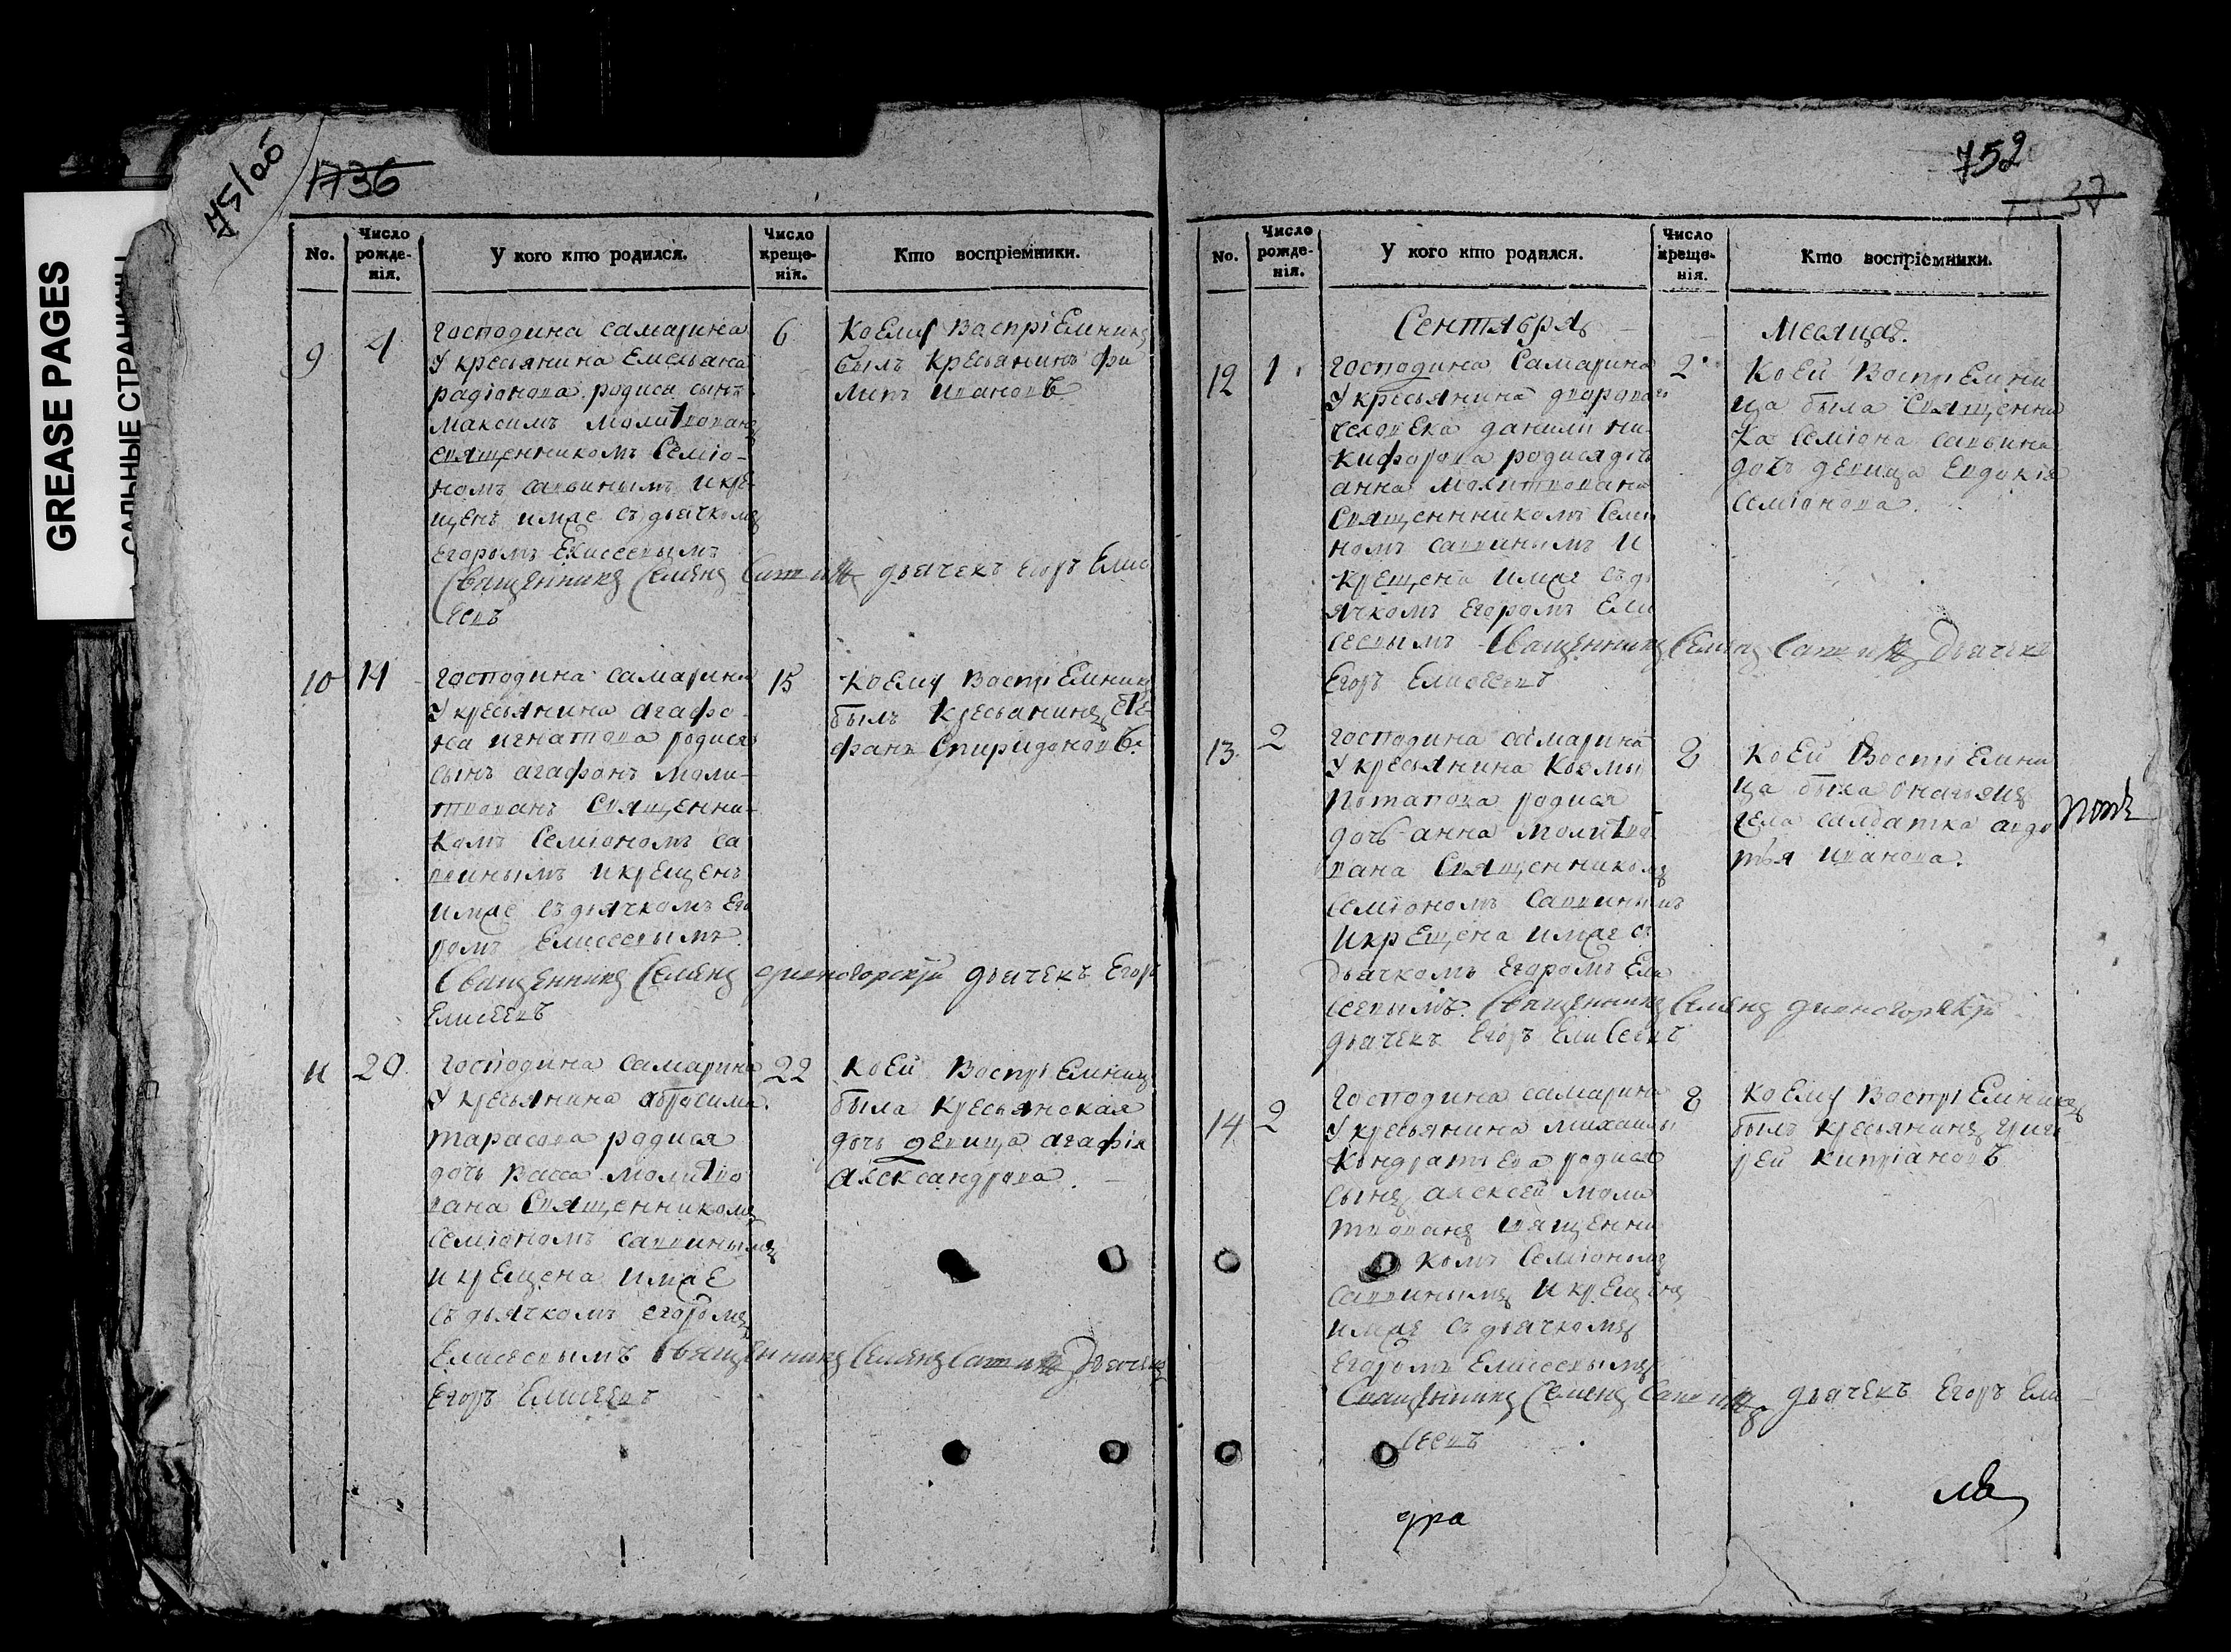 GREASE PAGES
САЛЬНЫЕ СТРАНИЦЫ
751об
1736
No.
Число рожде-нія.
У кого кто родился.
Число креще-нія.
Кто воспріемники.
9
4
Господина самарина
У кресьянина Емельяна
радіонова родися сынъ
максимъ молитвованъ
священникомъ Семіо-
номъ савинымъ и кре-
щенъ имже съ дьячкомъ
Егоромъ Елисеевымъ
Священникъ Семенъ дьячекъ Егоръ Елис
еевъ
6
Коему воспріЕмникъ
былъ кресьянинъ фи
липъ ивановъ
10
14
Господина самарина
У кресьянина агафо
на игнатова родися
сынъ агафонъ моли-
твованъ священни-
комъ Семіономъ са
винымъ и крещенъ
имже съ дьячкомъ Его
ромъ Елисеевымъ
Священникъ Семенъ дивногорскій дьячекъ Егоръ
Елисеевъ
15
Коему воспріЕмникъ
былъ кресьянинъ сте
фанъ Спиридоновъ.
11
20
Господина самарина
У кресьянина абросима
тарасова родися
дочь васса молитво
вана священникомъ
Семіономъ саввинымъ
и крещена имже
съ дьячкомъ егоромъ
Елисеевымъ священникъ Семенъ дьячекъ
Егоръ Елисеевъ
22
Коей воспріЕмница
была кресьянская
дочь девица агафія
александрова.
752
37
No.
Число рожде-нія.
У кого кто родился.
Число креще-нія.
Кто воспріемники.
Сентября
месяца.
12
1
Господина Самарина
У кресьянина дворового
человека данилы ни
кифорова родися дочь
анна молитвована
священникомъ Семио
номъ саввинымъ и
крещена имже съ дь
ячкомъ егоромъ Ели
сеевымъ Священникъ Семенъ дьячекъ
Егоръ Елисеевъ
2
Коей воспріЕмни
ца была священни
ка Семіона саввина
дочь девица Евдокія
Семіонова.
13
2
Господина самарина
У кресьянина Козмы
потапова родися
дочь анна молитво
вана священникомъ
Семіономъ саввинымъ
и крещена имже с
дьячкомъ Егоромъ Ели
сеевымъ. Священникъ Семенъ дивногорскій
дьячекъ Егоръ Елисеевъ
8
Коей воспріЕмни
ца была
села салдатка авдо
тья иванова.
14
2
Господина самарина
У кресьянина михаилы
кондратьева родися
сынъ алексей моли
твованъ священни
комъ Семіономъ
саввинымъ и крещенъ
имже съ дьячкомъ
Егоромъ Елисеевымъ
Священникъ Семенъ дьячекъ Егоръ Ели
сеевъ
8
Коему воспріЕмникъ
былъ кресьянинъ григо
рей кипріановъ